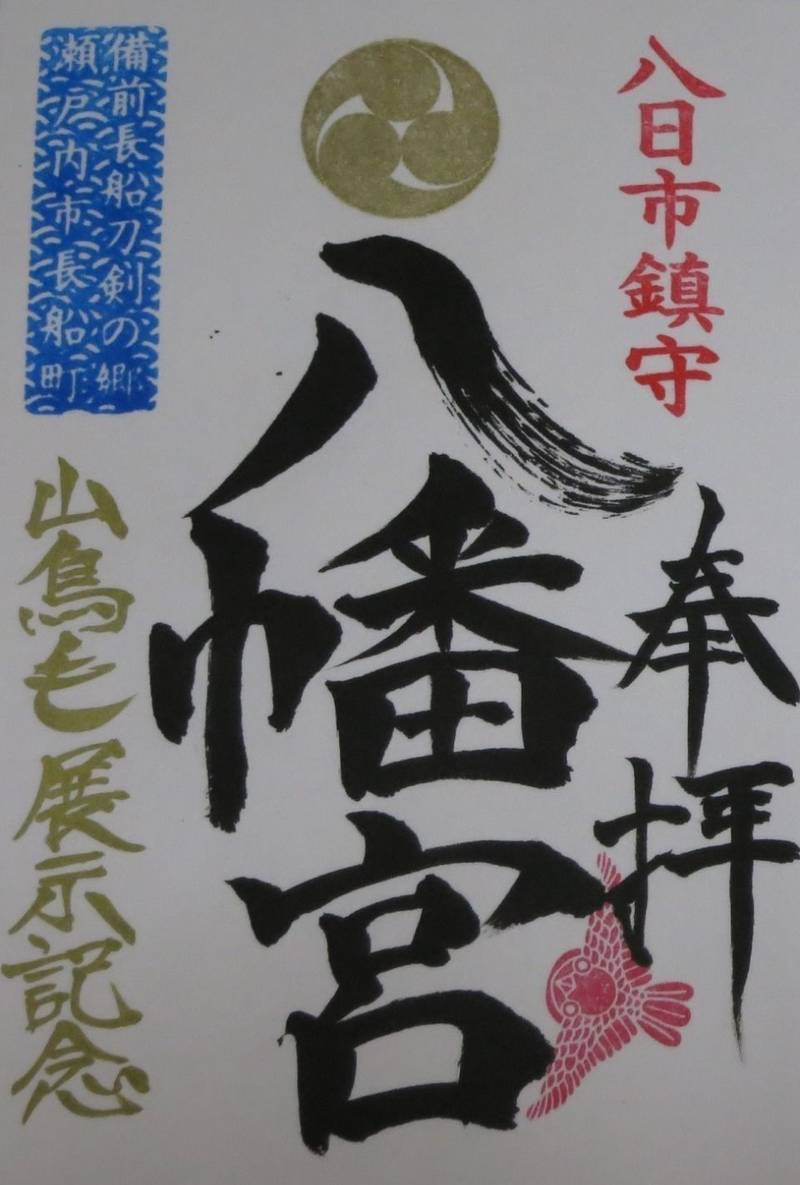 八日市鎮守
奉拝
八幡宮
備前長船刀剣の郷
瀬戸内市長船町
山鳥毛展示記念